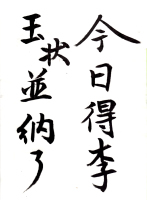 今日得李
玉状並納了